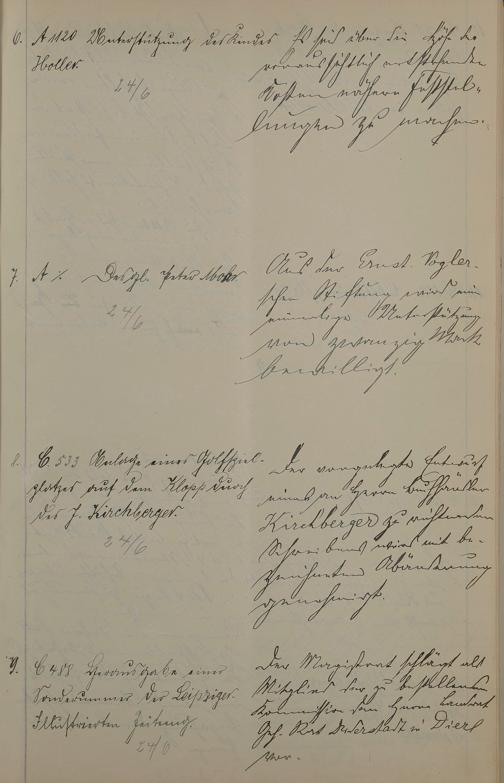 6. A 1120 Unterstützung des Kindes
Holler
24/6
Es sind über die Höhe der
voraussichtlich entstehenden
Kosten nähere Feststel-
lungen zu machen.
7. A ./. Desgl. Peter Mohr
24/6
Aus der Ernst Vogler-
schen Stiftung wird eine
einmalige Unterstützung
von zwanzig Mark
bewilligt.
8. C. 533 Anlage eines Golfspiel-
platzes auf dem Klopp durch
des J. Kirchberger
24/6
Der vorgelegte Entwurf
eines an Herrn Buchhändler
Kirchberger zu richtenden
Schreibens wird mit be-
zeichneten Abänderung
genehmigt.
9. C 488 Herausgabe einer
Sondernummer der Leipziger
Illustrierten Zeitung.
24/6
Der Magistrat schlägt als
Mitglied der zu bestellenden
Kommission den Herrn Landrat
Geh. Rat u. Dierl
vor.